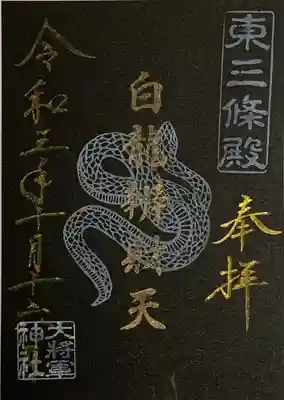 東三條殿
奉拝
白龍辨財天
令和三年十月十二
大将軍
神社